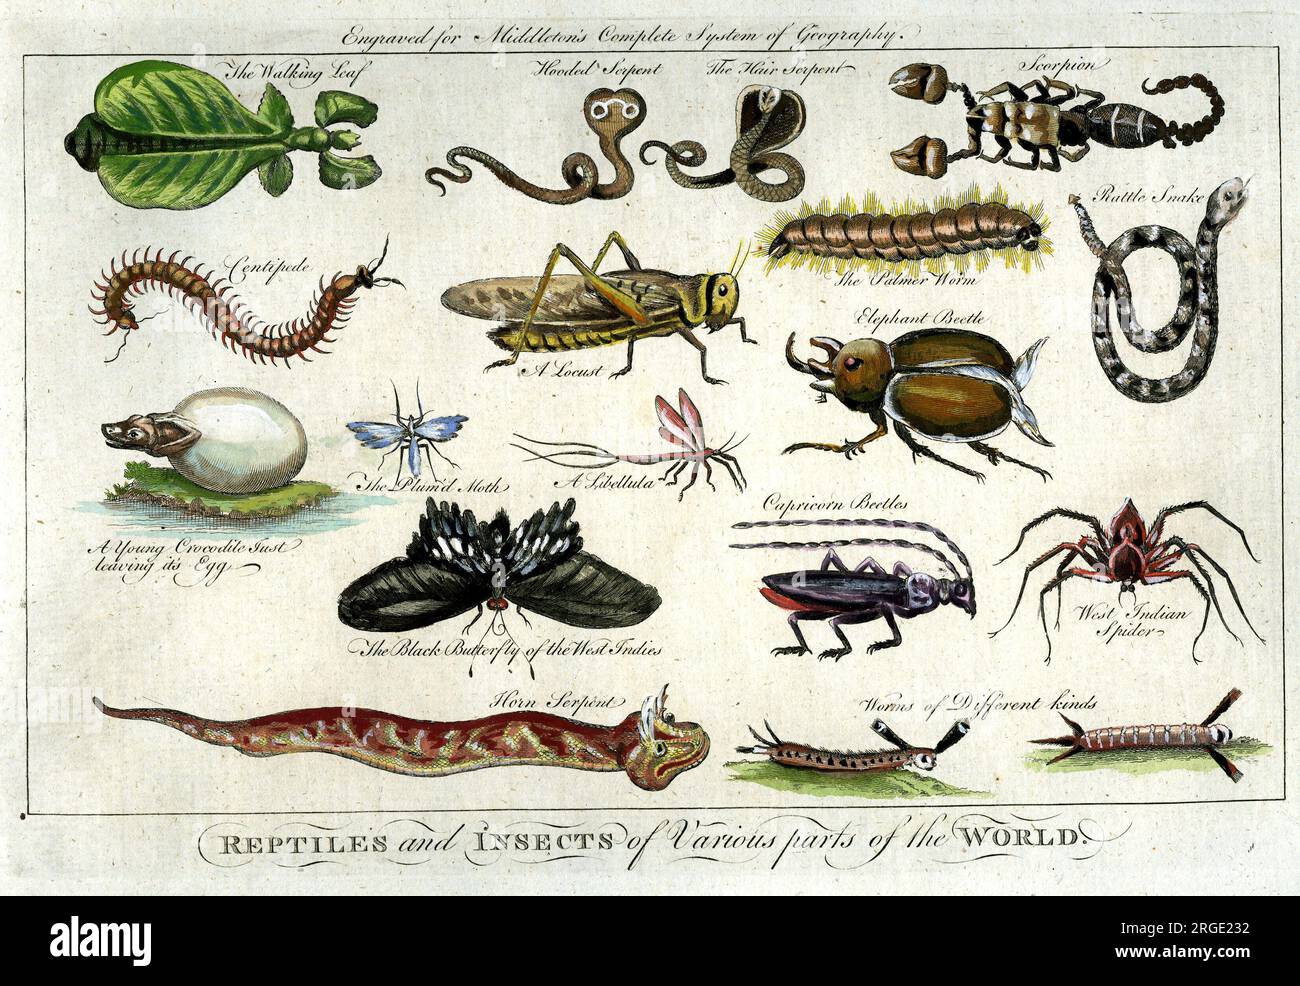 Engraved for Middleton's Complete System of Geography.
The Walking Leaf
Hooded Serpent
The Hair Serpent
Scorpion
Rattle Snake
Centipede
The Palmer Worm
A Locust
Elephant Beetle
The Plum'd Moth
A Libellula
Capricorn Beetles
A Young Crocodile Just
leaving its Egg
West Indian
Spider
The Black Butterfly of the West Indies
Horn Serpent
Worms of Different kinds
REPTILES and INSECTS of Various parts of the WORLD.
alamy
Image ID: 2RGE232
www.alamy.com